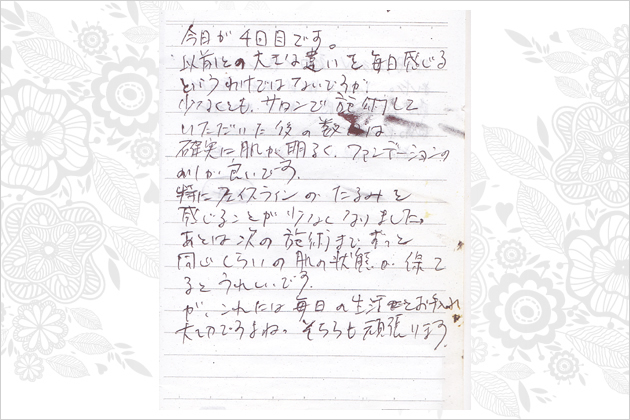 今日が4回目です。
以前との大きな違いを毎日感じる
というわけではないですが、
少なくとも、サロンで施術して
いただいた後の数日は
確実に肌が明るく、ファンデーションの
のりが良いです。
特にフェイスラインのたるみを
感じることが少なくなりました。
あとは次の施術までずっと
同じくらいの肌の状態が保て
るとうれしいです。
が、これには毎日の生活とお手入れ
大切ですよね。そちらも頑張ります。